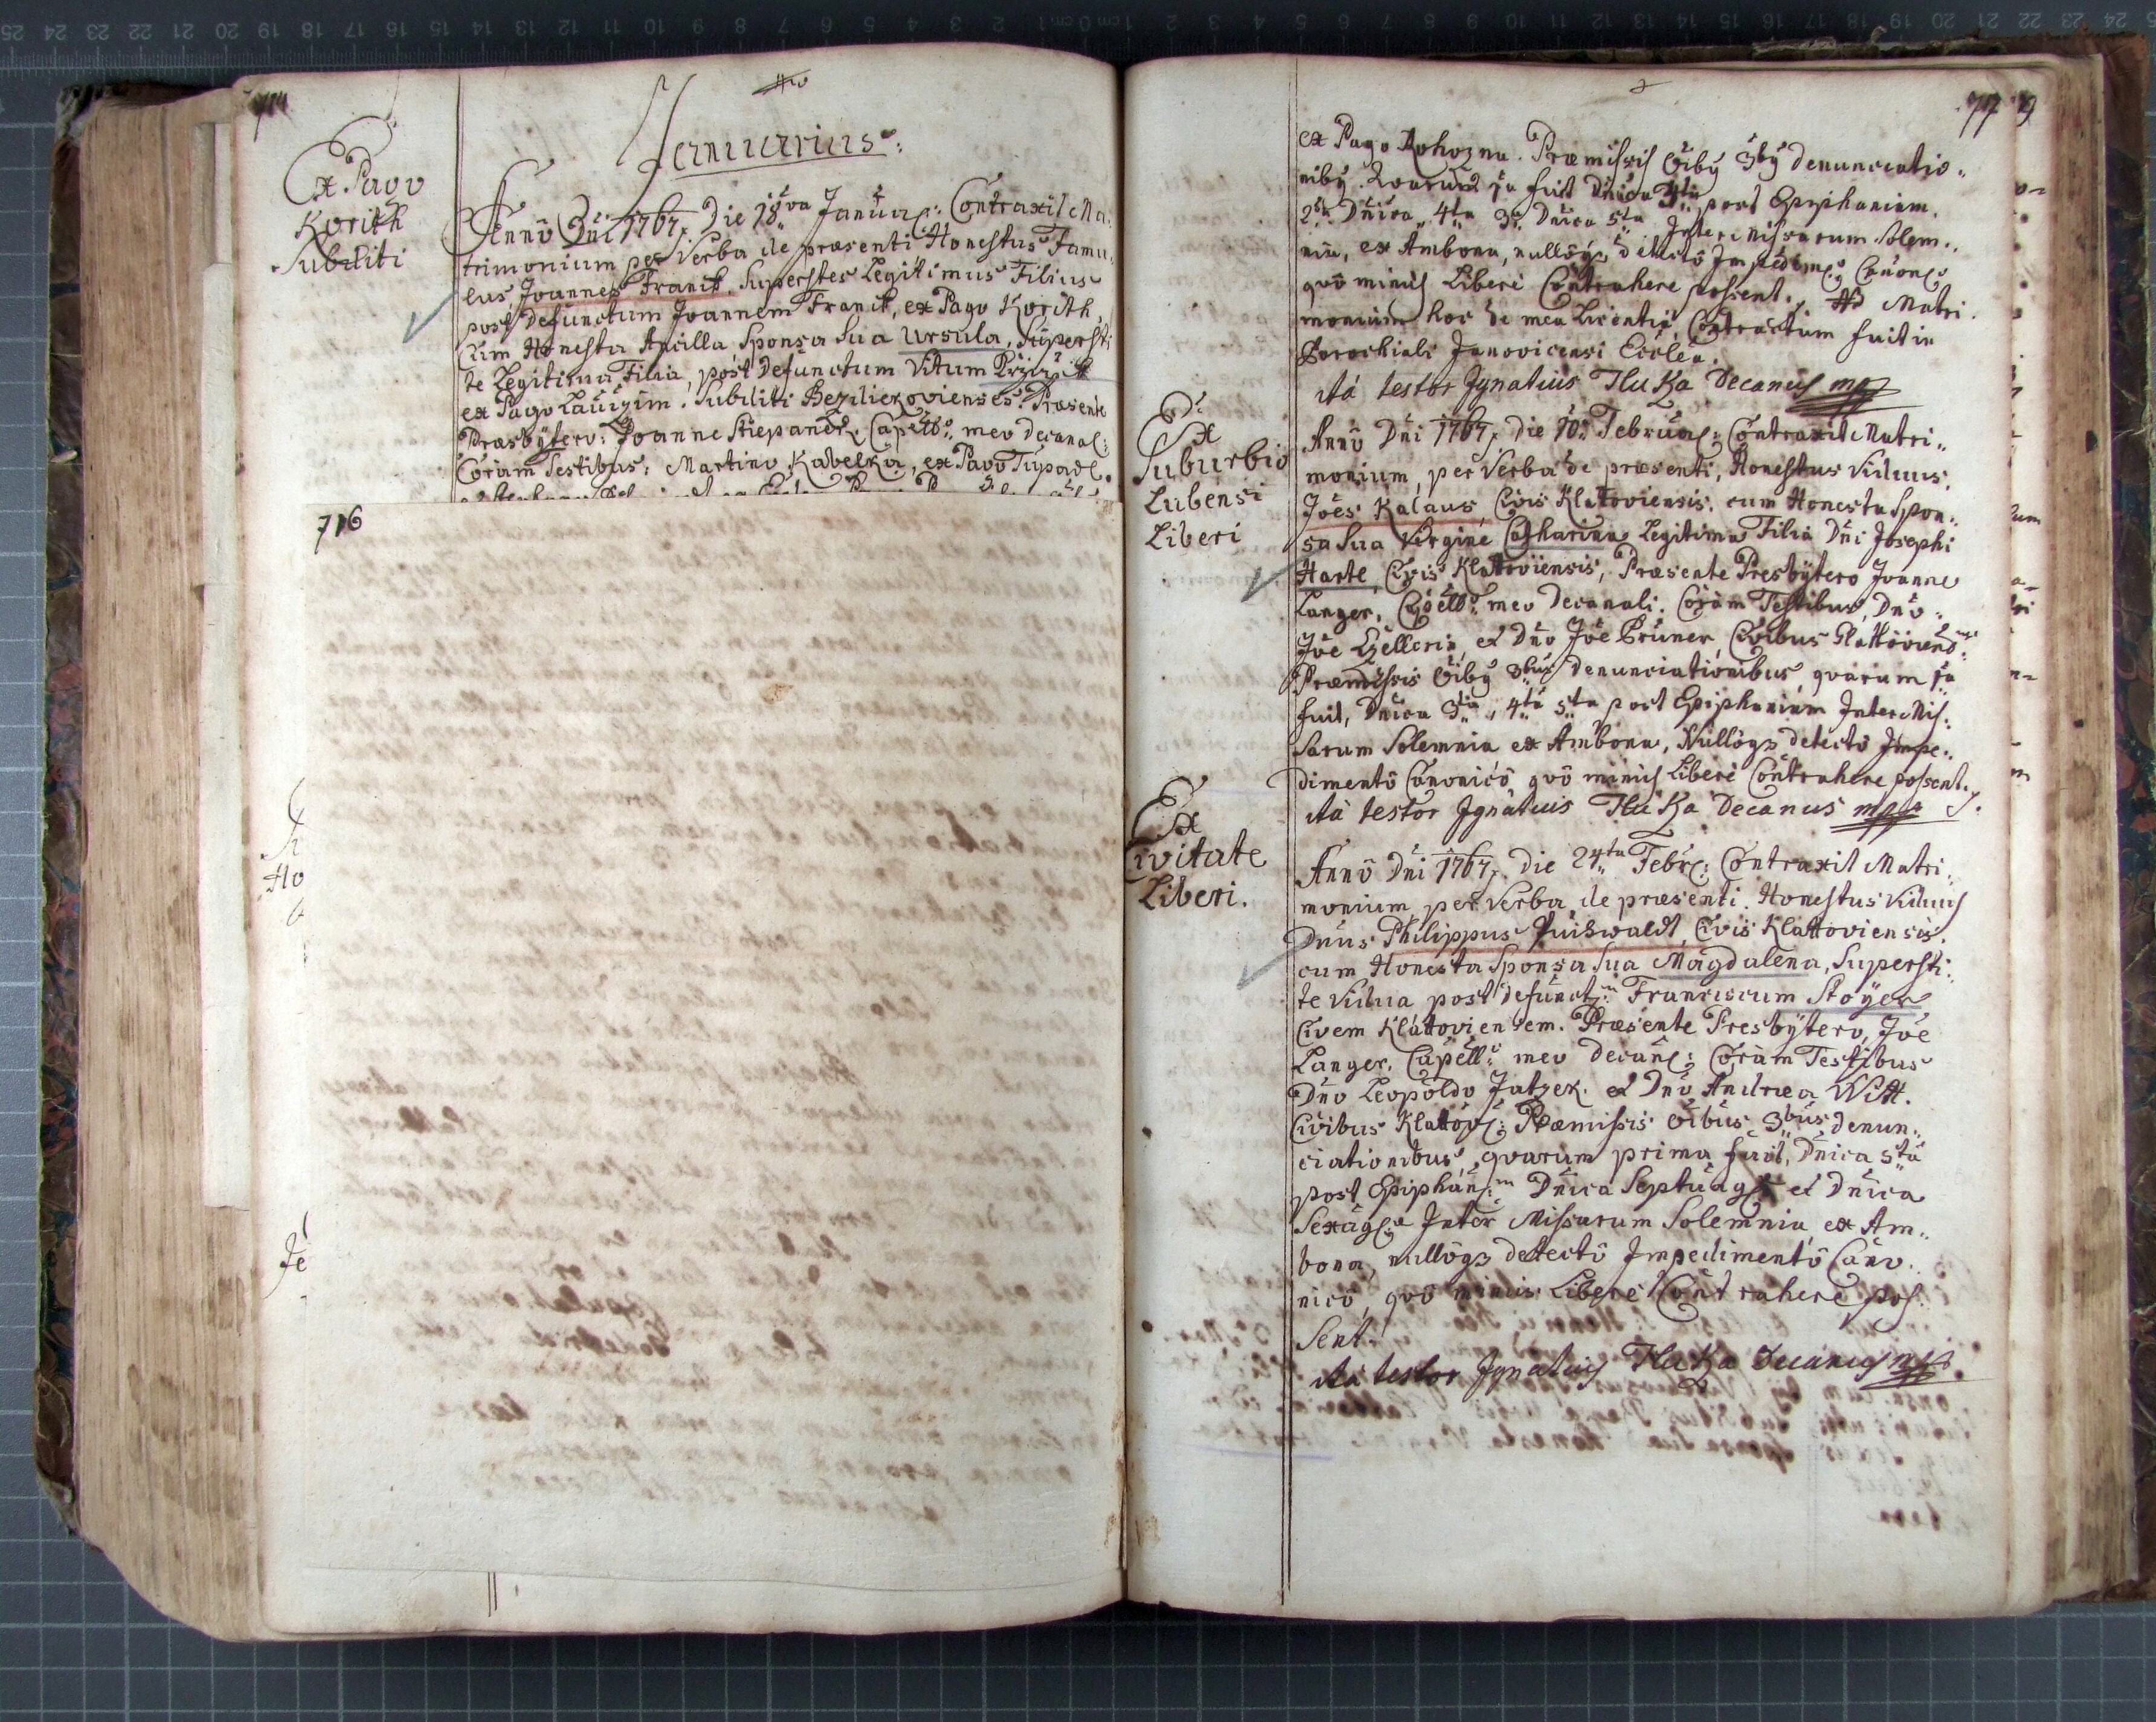 714
Januarius:
Ex Pago
Korith
Subditi
Anno Dni 1767. Die 18va Januar: Contraxit Ma:
trimonium per Verba de præsenti Honestus Famu:
lus, Joannes Franik, Superstes Legitimus Filius
post Defunctum Joannem Franik, ex Pago Korith,
Cum Honesta Ancilla Sponsa Sua Ursula, Supersti
te Legitima Filia, post Defunctum Vitum
ex Pago Lauizim. Subditi Bezdiekovienses. Præsente
Præsbytero: Joanne Stiepanek, Capello meo Decanal:
Coram Testibus: Martino Kabelka, ex Pago Tupadl.
716
Ho
Je
717
ex Pago Rohozna. Præmissis Oibg 3bg denunciatio:
nibg. Quarum 1a fuit Dnica 3tia post Epiphaniam.
2da Dnica 4ta 3a Dnica 5ta Inter Missarum Solem:
nia, ex Ambona, nullogz detecto Impedim: Canon:
quo minus Libere Contrahere possent. Matri
monium hoc de mea Licentia, Contractum fuit in
Parochiali Janovicensi Ecclea.
Ità testor Jgnatius Hluka Decanus mpp
Ex
Suburbio
Lubensi
Liberi
Anno Dni 1767. Die 10. Februar: Contraxit Matri:
monium, per Verba de præsenti, Honestus Viduus,
Joes Kalaus, Civis Klattoviensis, cum Honesta Spon:
sa Sua Virgine Catharina Legitima Filia Dni Josephi
Harte, Civis Klattoviensis, Præsente Presbytero Joanne
Langer, Capello meo Decanali. Coram Testibus, Dno
Joe et Dno Joe Bruner, Civibus Klattoviens:
Præmissis Oibg 3bus Denunciationibus, quarum 1a
fuit, Dnica 3tia, 4ta 5ta post Epiphaniam Inter Mis:
sarum Solemnia ex Ambona, Nullogz detecto Impe:
dimento Canonico quo minus Libere Contrahere possent.
Ità testor Jgnatius Hluka Decanus mpp
Ex
Civitate
Liberi.
Anno Dni 1767. Die 24ta Febr: Contraxit Matri:
monium, per Verba de præsenti. Honestus Viduus
Dnus Philippus Civis Klattoviensis.
cum Honesta Sponsa Sua Magdalena, Supersti:
te Vidua post defunctm Franciscum Stoyer
Civem Klattoviensem. Præsente Presbytero, Joe
Langer, Capello meo Decanl: Coram Testibus
Dno Leopoldo Jatzek. et Dno Andrea Witt.
Civibus Klattov: Præmissis Oibus 3bus denun:
ciationibus, quarum prima fuit, Dnica 5ta
post Epiphanm Dnica Septuag et Dnica
Sexag: Inter Missarum Solemnia ex Am:
bona, nullogz detecto Impedimento Cano:
nico, quo minus Libere Contrahere pos:
sent.
Ità testor Jgnatius Hluka Decanus mpp